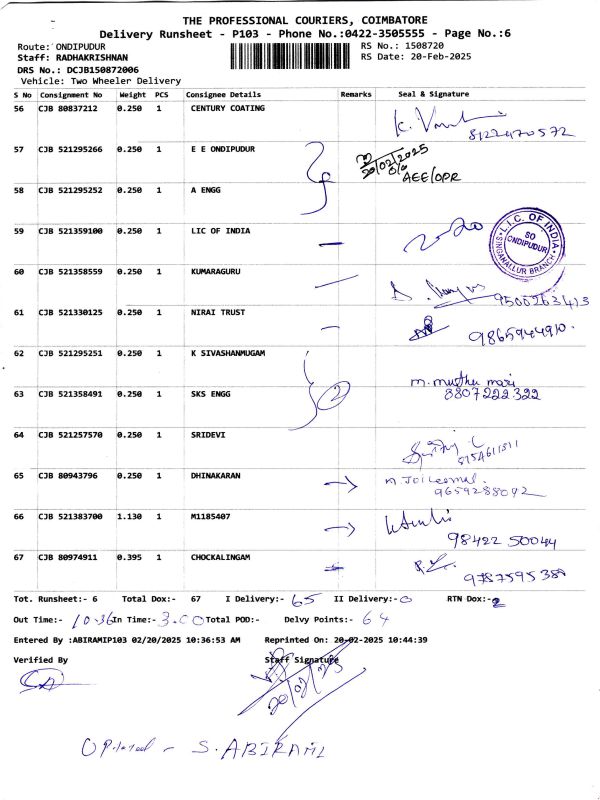 THE PROFESSIONAL COURIERS, COIMBATORE
Delivery Runsheet - P103 - Phone No.:0422-3505555 - Page No.:6
Route: ONDIPUDUR RS No.: 1508720
Staff: RADHAKRISHNAN RS Date: 20-Feb-2025
DRS No.: DCJB150872006
Vehicle: Two Wheeler Delivery
S No Consignment No Weight PCS Consignee Details Remarks Seal & Signature
56 CJB 80837212 0.250 1 CENTURY COATING
8122470572
57 CJB 521295266 0.250 1 E E ONDIPUDUR
20/02/2025
AEE/OPR
58 CJB 521295252 0.250 1 A ENGG
59 CJB 521359100 0.250 1 LIC OF INDIA
L.I.C. OF INDIA
SO
ONDIPUDUR
SINGANALLUR BRANCH
60 CJB 521358559 0.250 1 KUMARAGURU
9500263413
61 CJB 521330125 0.250 1 NIRAI TRUST
9865944910.
62 CJB 521295251 0.250 1 K SIVASHANMUGAM
2
m. muthu mari
63 CJB 521358491 0.250 1 SKS ENGG
8807222322
64 CJB 521257570 0.250 1 SRIDEVI
65 CJB 80943796 0.250 1 DHINAKARAN
9659288042
66 CJB 521383700 1.130 1 M1185407
98422 50044
67 CJB 80974911 0.395 1 CHOCKALINGAM
9787595388
Tot. Runsheet:- 6 Total Dox:- 67 I Delivery:- 65 II Delivery:- 0 RTN Dox:- 2
Out Time:- 10.36 In Time:- 3.00 Total POD:- Delvy Points:- 64
Entered By :ABIRAMIP103 02/20/2025 10:36:53 AM Reprinted On: 20-02-2025 10:44:39
Verified By Staff Signature
20/02/25
S. ABIRAMI